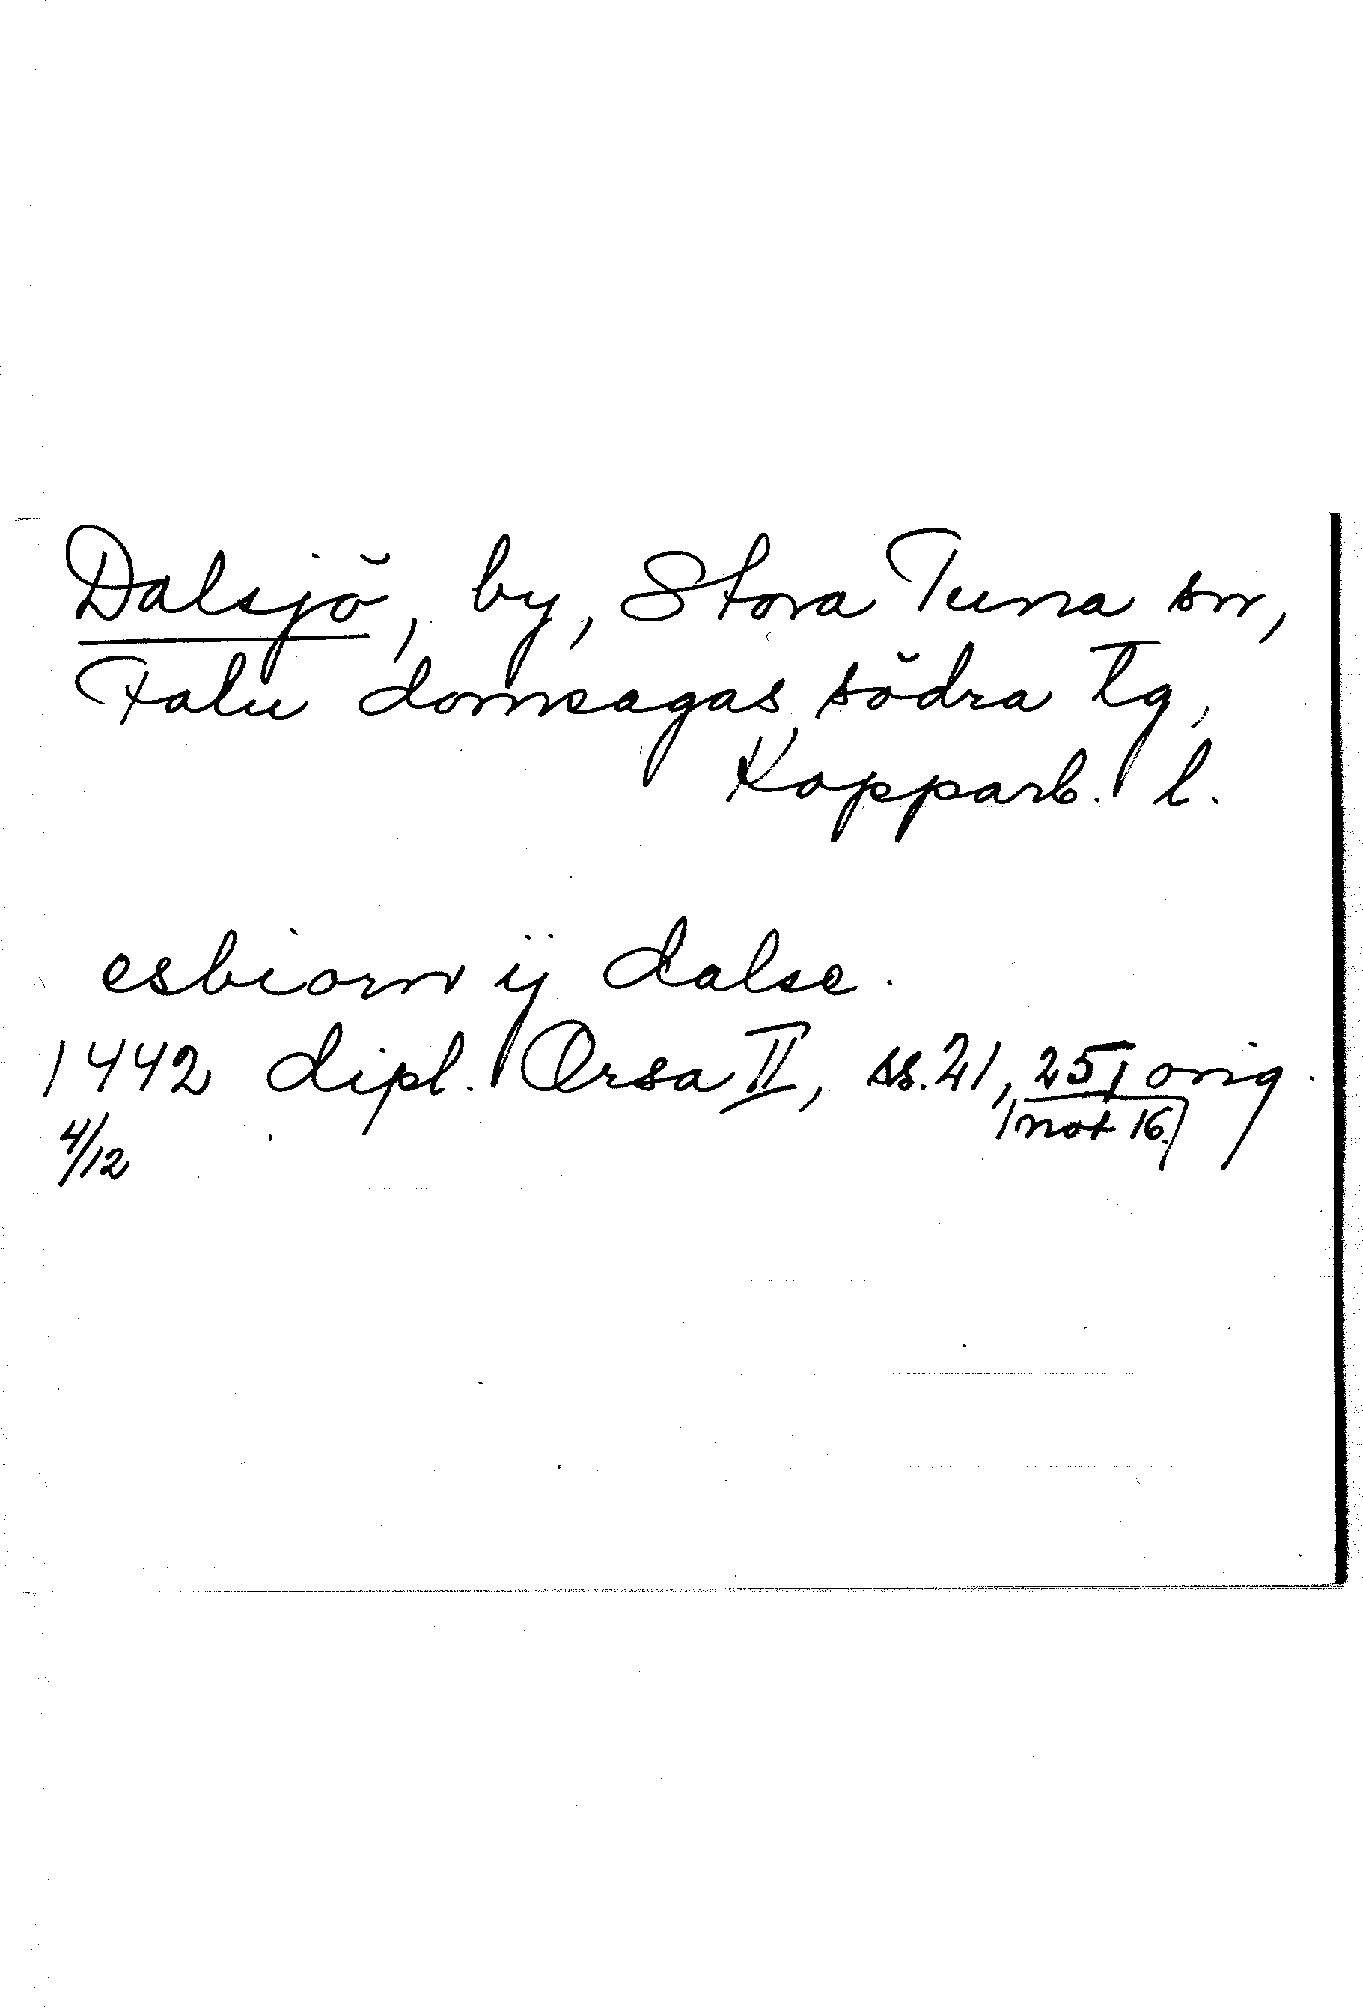 Dalsjö, by, Stora Tuna sn,
Falu domsagas södra tg,
Kopparb. l.
esbiorn ij dalse.
1442 dipl. Orsa II, ss. 21, 25, orig.
(not 16)
4/12